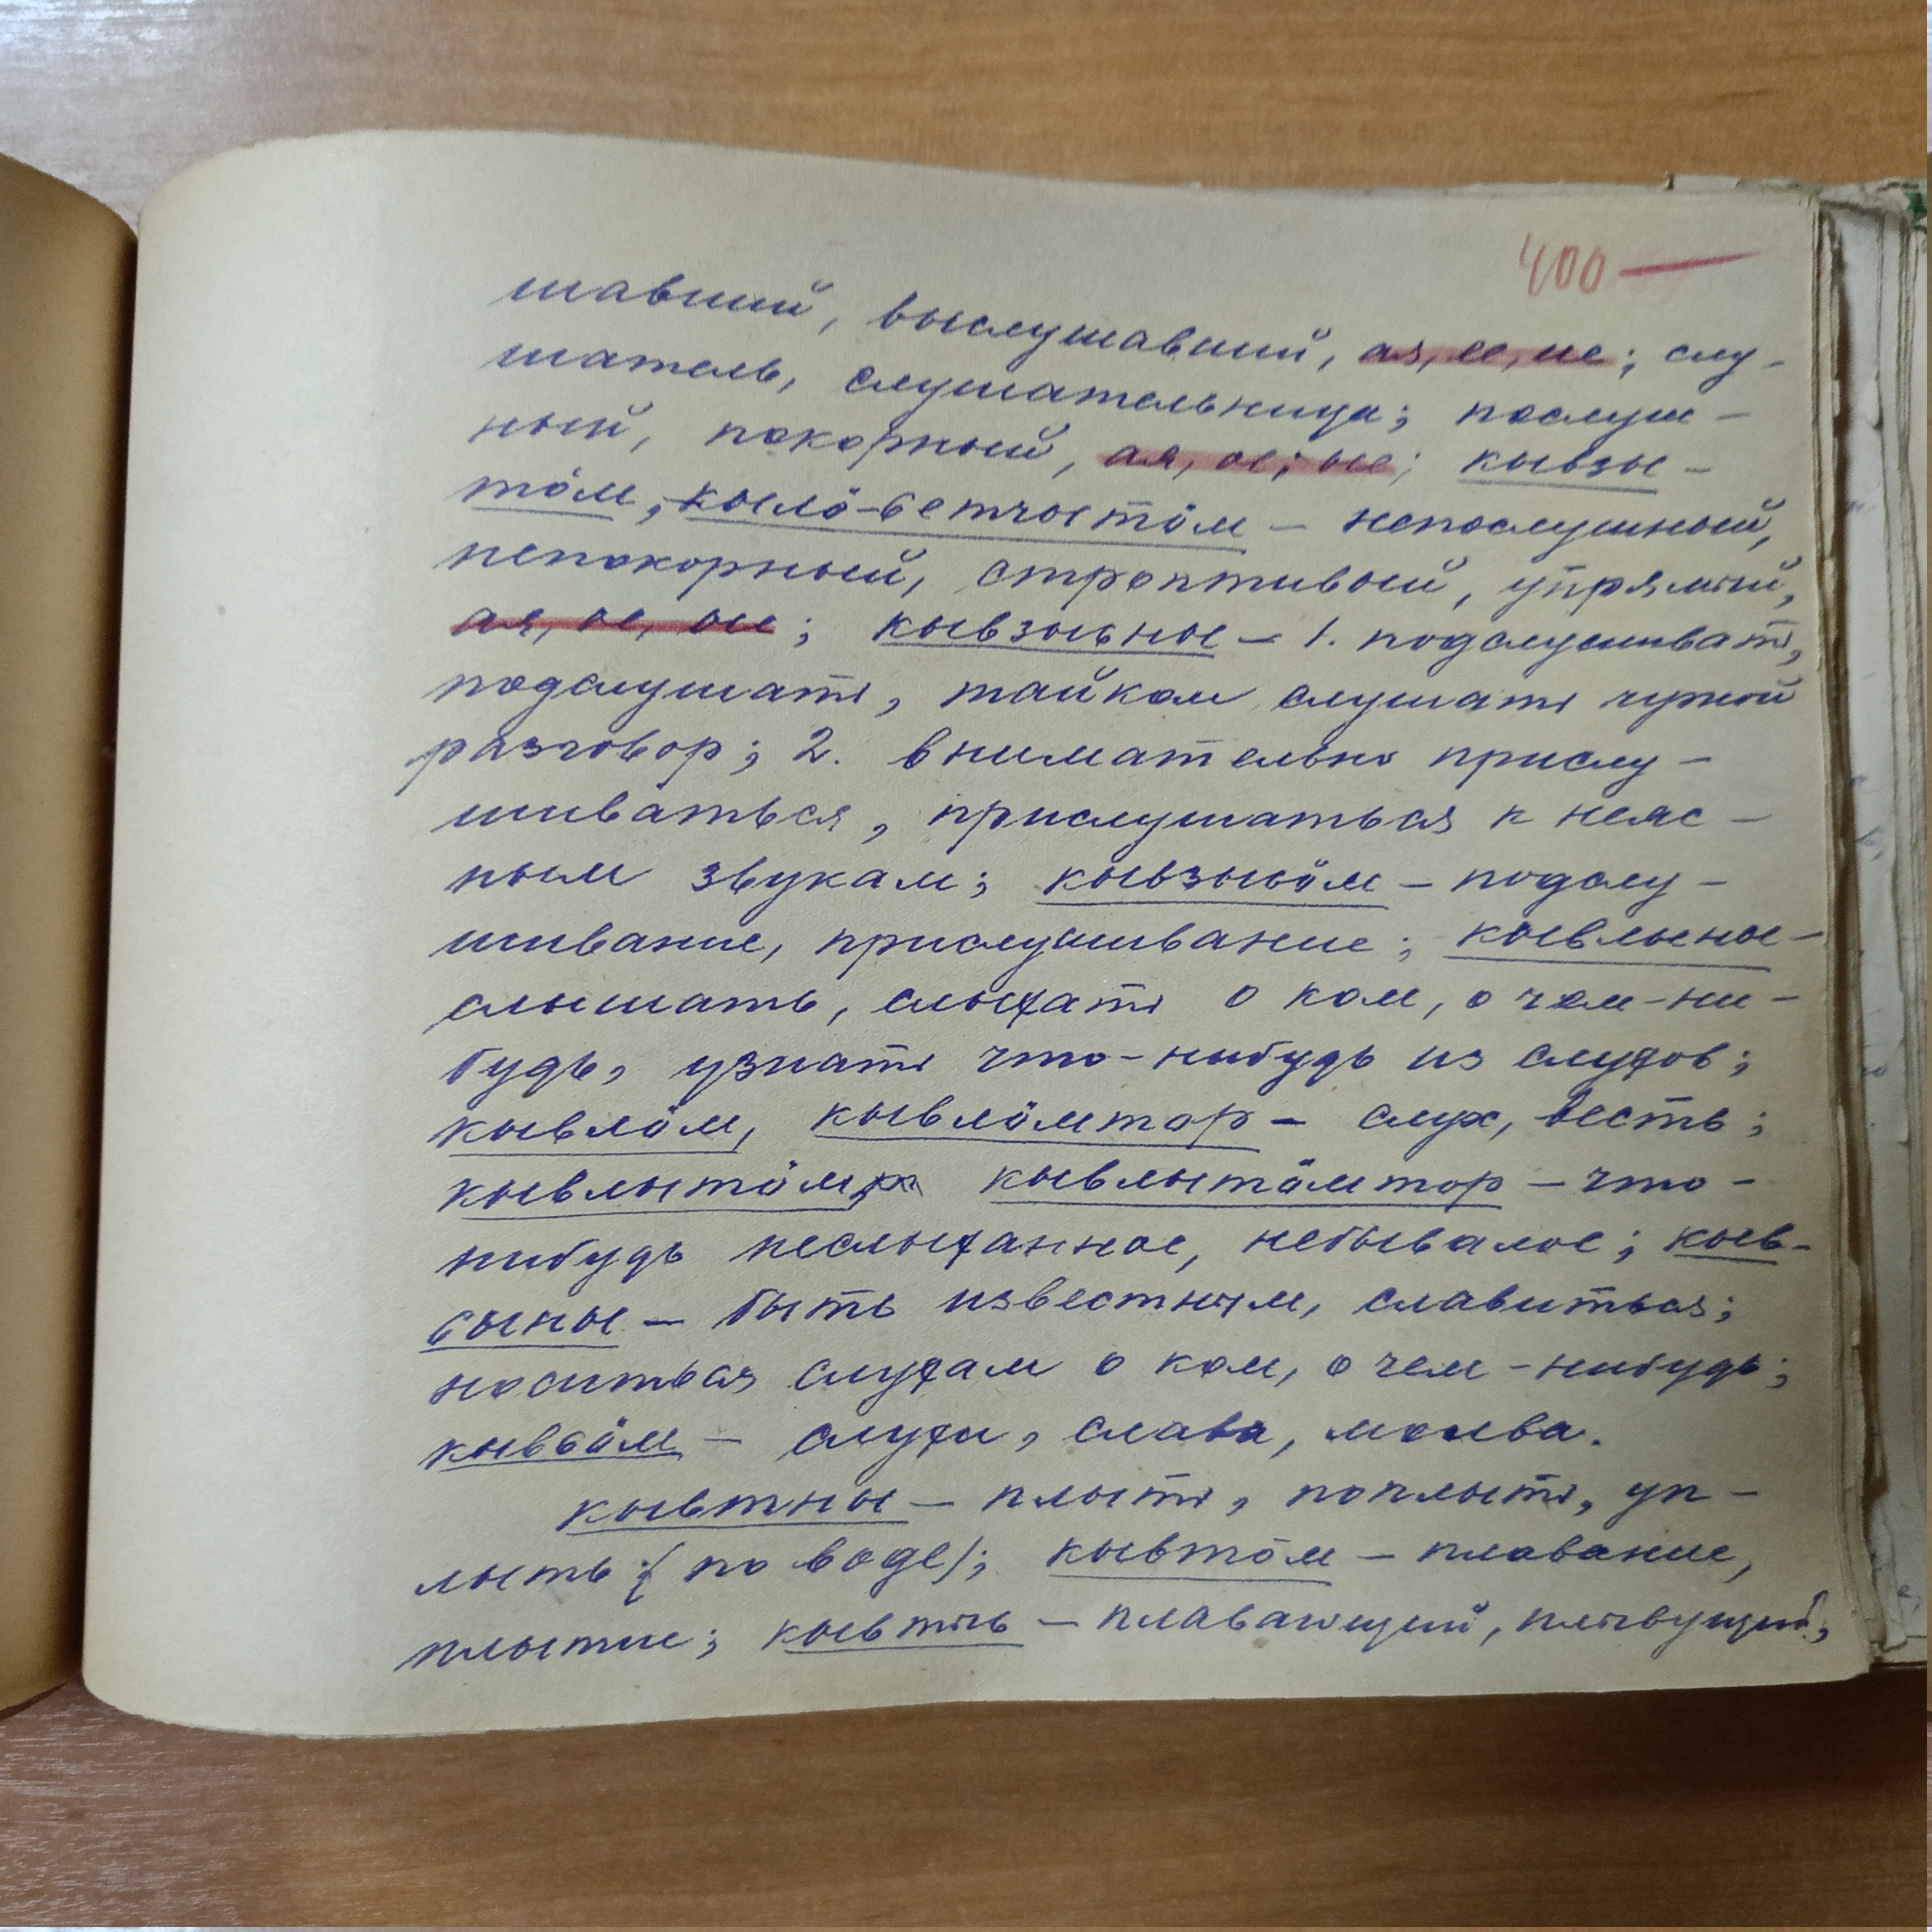 400
шавший, выслушавший, ая, ее, ие; слу-
шатель, слушательница; послуш-
ный, покорный, ая, ое, ые; кывзы-
тӧм, кылӧ-бетчытӧм – непослушный,
непокорный, строптивый, упрямый,
ая, ое, ые; кывзысьны – 1. подслушивать,
подслушать, тайком слушать чужой
разговор; 2. внимательно прислу-
шиваться, прислушаться к неяс-
ным звукам; кывзысьӧм – подслу-
шивание, прислушивание; кывлыны –
слышать, слыхать о ком, о чем-ни-
будь, узнать что-нибудь из слухов;
кывлӧм, кывлӧмтор – слух, весть;
кывлытӧм, кывлытӧмтор – что-
нибудь неслыханное, небывалое; кыв-
сыны – быть известным, славиться;
носиться слухам о ком, о чем-нибудь;
кывсӧм – слухи, слава, молва.
кывтны – плыть, поплыть, уп-
лыть (по воде); кывтӧм – плавание,
плытие; кывтысь – плавающий, плывущий,